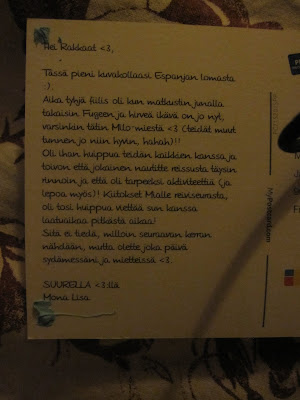 Hei Rakkaat <3,
Tässä pieni kuvakollaasi Espanjan lomasta
:).
Aika tyhjä fiilis oli kun matkustin junalla
takaisin. Fugeen ja hirveä ikävä on jo nyt,
varsinkin tätin Milo-miestä <3 (teidät muut
tunnen jo niin hyvin, hahah)!!
Oli ihan huippua teidän kaikkien kanssa ja
toivon että jokainen nautitte reissusta täysin
rinnoin ja että oli tarpeeksi aktiviteettiä (ja
lepoa myös)! Kiitokset Mialle reinseurasta,
oli tosi huippua viettää sun kanssa
laatuaikaa pitkästä aikaa!
Sitä ei tiedä, milloin seuraavan kerran
nähdään, mutta olette joka päivä
sydämessäni ja mietteissä <3.
SUURELLA <3:llä
Mona Lisa
MyPostcard.com